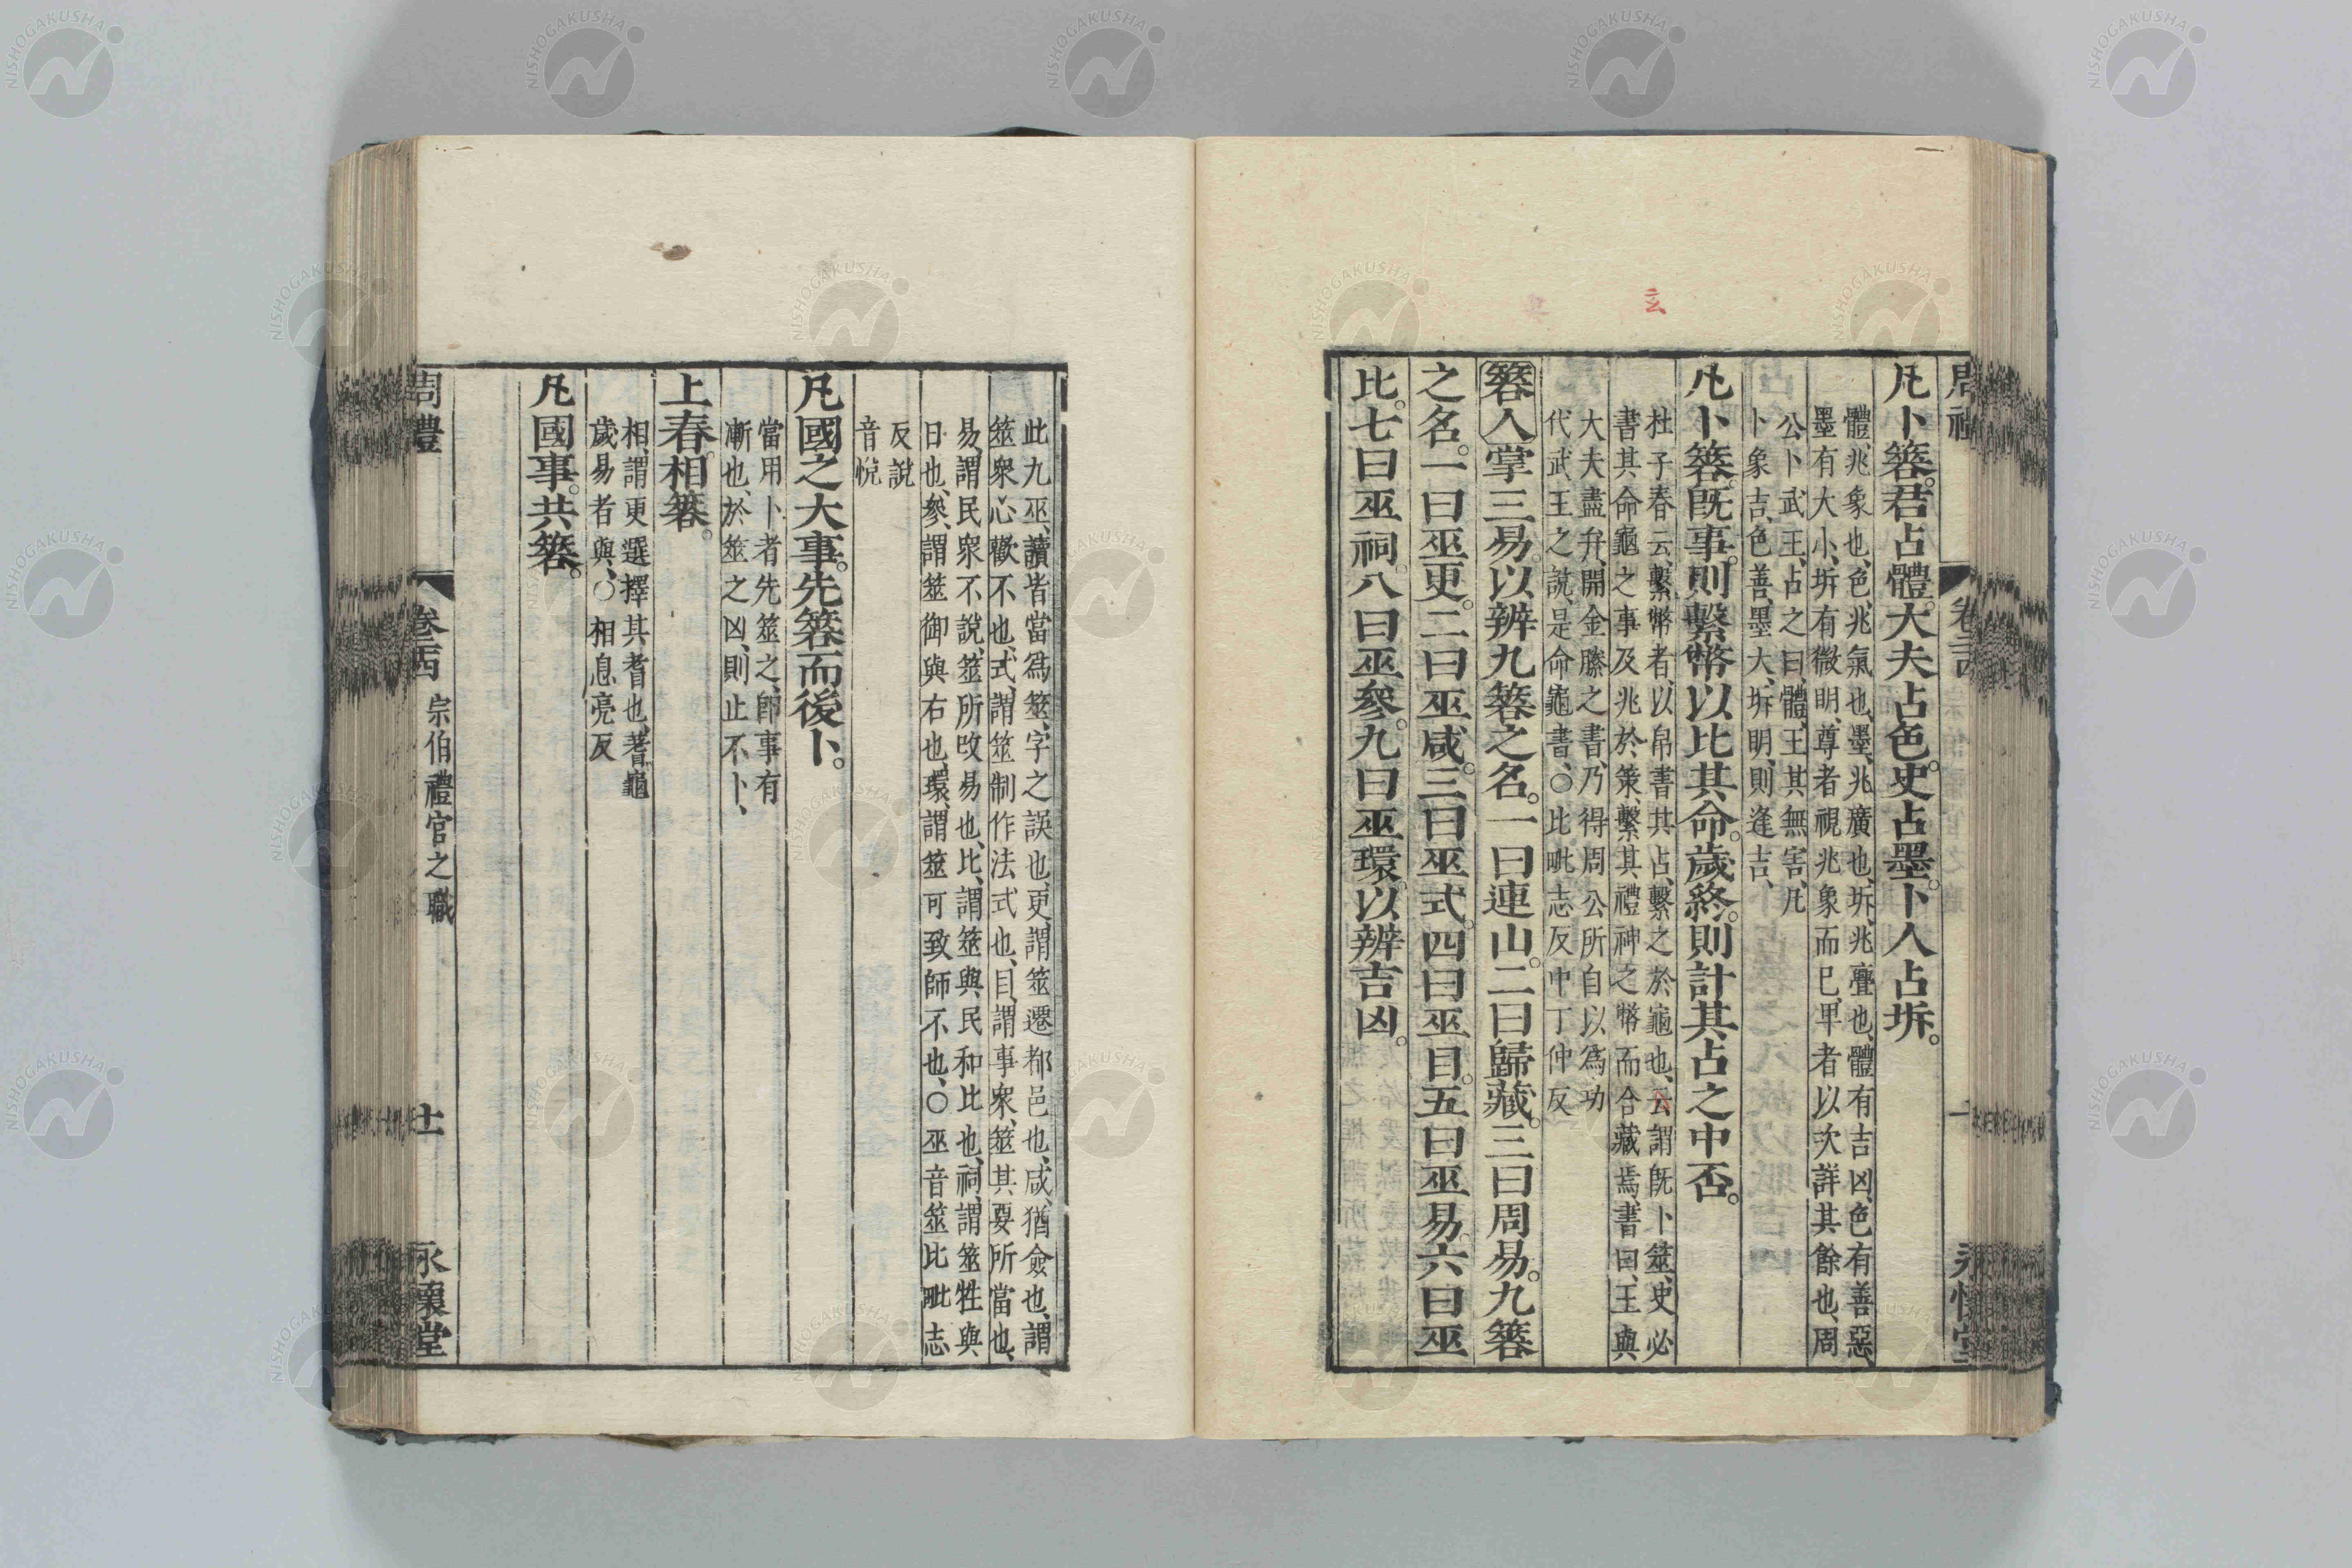 凡卜簭。君占體。大夫占色。史占墨。卜人占坼。
體、兆象也、色、兆氣也、墨、兆廣也、坼、兆璺也、體有吉凶、色有善惡、
墨有大小、坼有微明、尊者視兆象而已、卑者以次詳其餘也、周
公卜武王、占之曰、體、王其無害、凡
卜象吉、色善、墨大、坼明、則逢吉、
凡卜簭。旣事。則繫幣以比其命。歲終。則計其占之中否。
玄
杜子春云、繫幣者、以帛書其占、繫之於龜也、云謂旣卜筮、史必
書其命龜之事及兆於策、繫其禮神之幣而合藏焉、書曰、王與
大夫盡弁、開金縢之書、乃得周公所自以爲功
代武王之說、是命龜書、○比毗志反中丁仲反
簭人掌三易。以辨九簭之名。一曰連山。二曰歸藏。三曰周易。九簭
之名。一曰巫更。二曰巫咸。三曰巫式。四曰巫目。五曰巫易。六曰巫
比。七曰巫祠。八曰巫參。九曰巫環。以辨吉凶。
此九巫、讀皆當爲筮、字之誤也、更、謂筮遷都邑也、咸、猶僉也、謂
筮衆心歡不也、式、謂筮制作法式也、目、謂事衆、筮其要所當也、
易、謂民衆不說、筮所攺易也、比、謂筮與民和比也、祠、謂筮牲與
日也、參、謂筮御與右也、環、謂筮可致師不也、○巫音筮比毗志
反說
音悅
凡國之大事。先簭而後卜。
當用卜者先筮之、卽事有
漸也、於筮之凶、則止不卜、
上春。相簭。
相、謂更選擇其蓍也、蓍龜
歲易者與、○相息亮反
凡國事。共簭。
周禮 卷二十四 宗伯禮官之職 十一 永懷堂
NISHOGAKUSHA